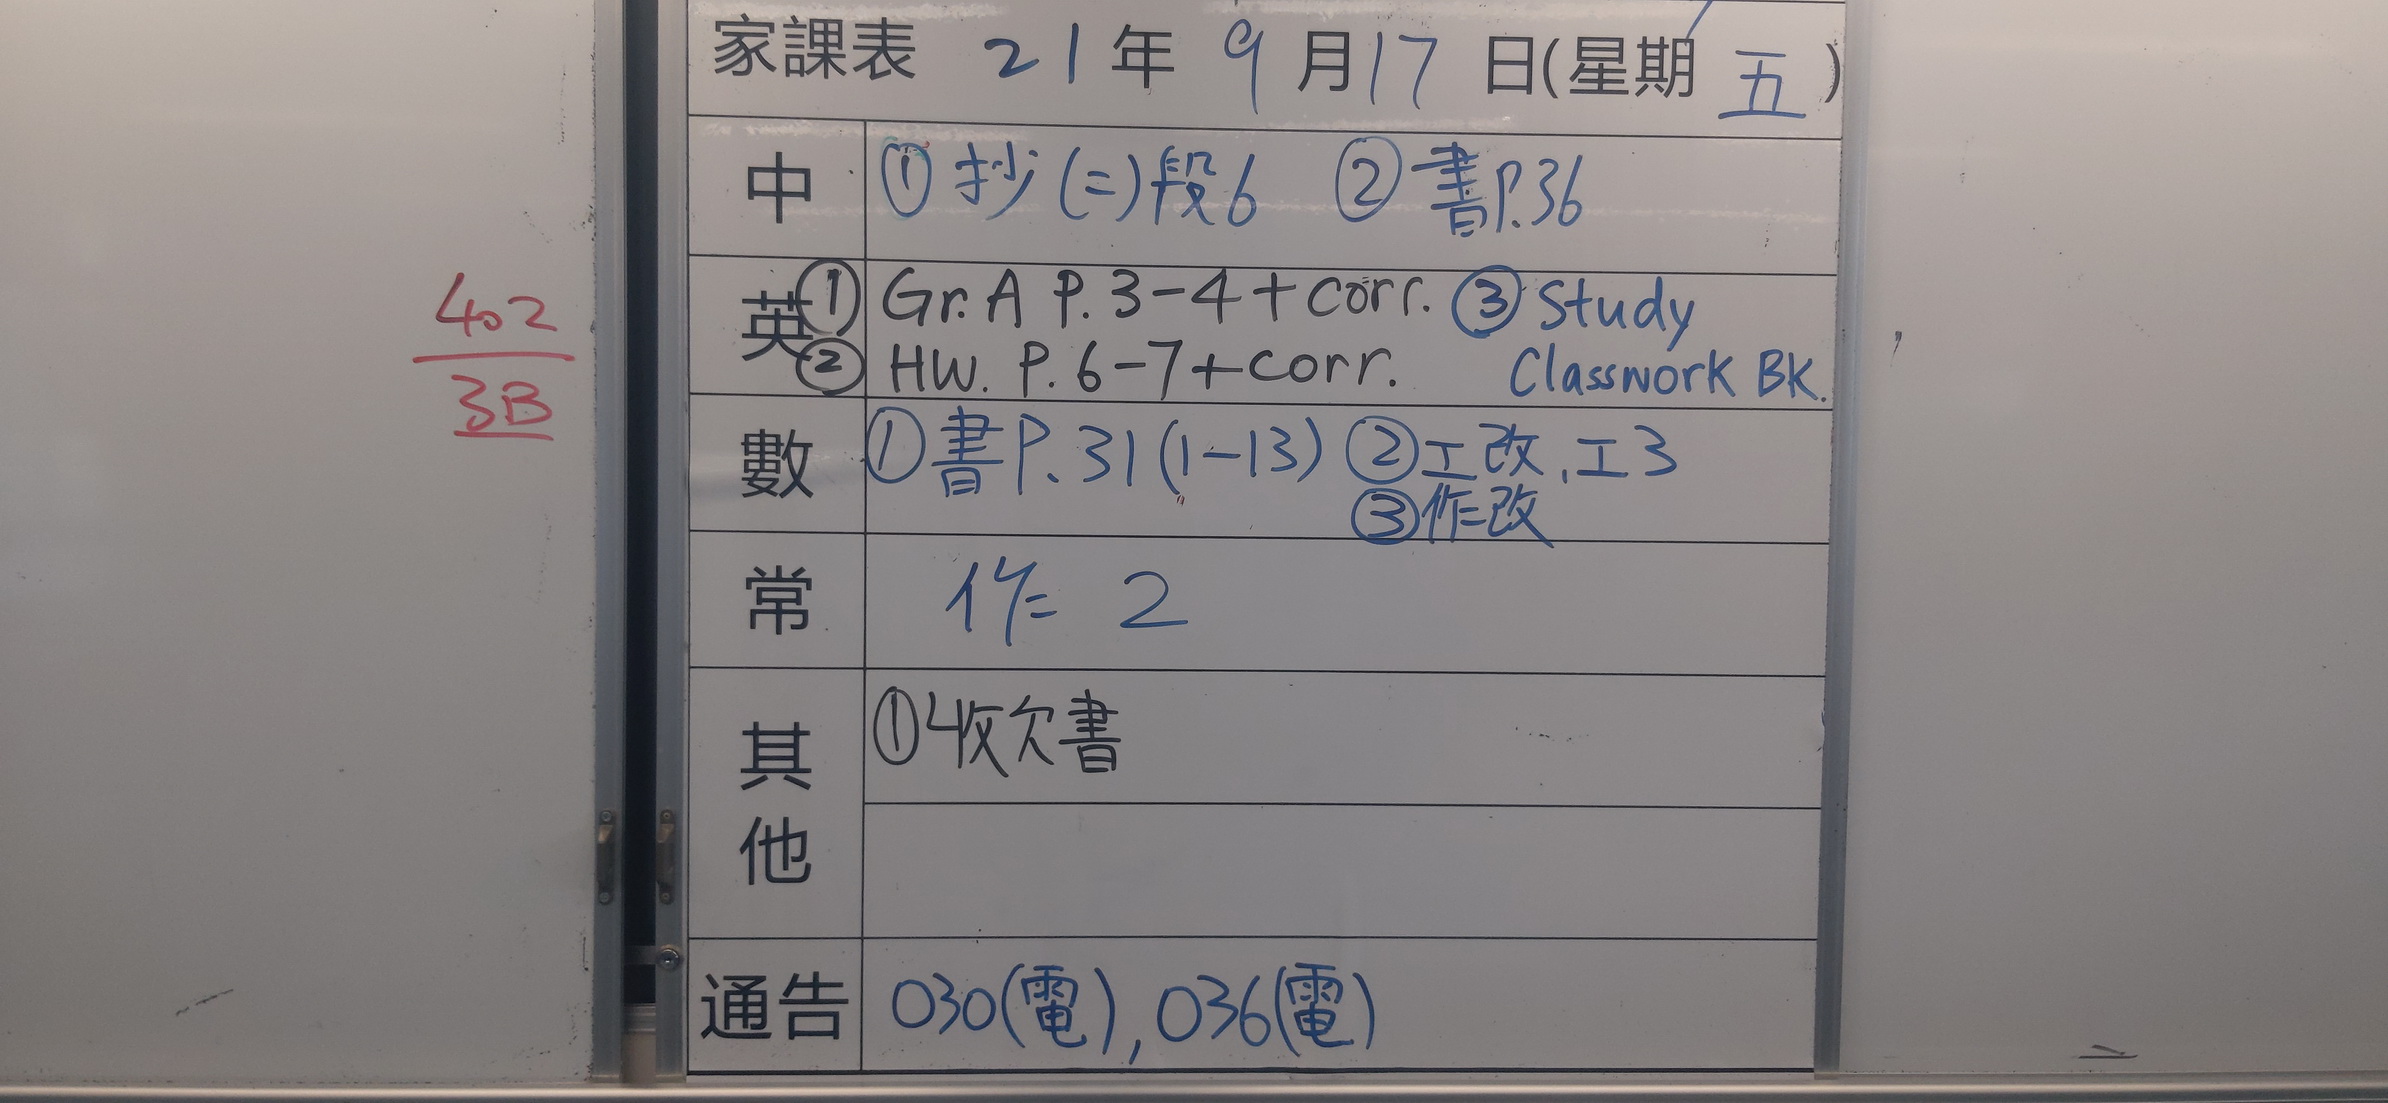 家課表 21年9月17日(星期五)
中 ①抄(二)段6 ②書P.36
402
3B
英 ①Gr.A P.3-4+corr. ③Study
②HW. P.6-7+corr. Classwork BK.
數 ①書P.31(1-13) ②工改,工3
③作改
常 作 2
其他 ①收欠書
通告 030(電),036(電)